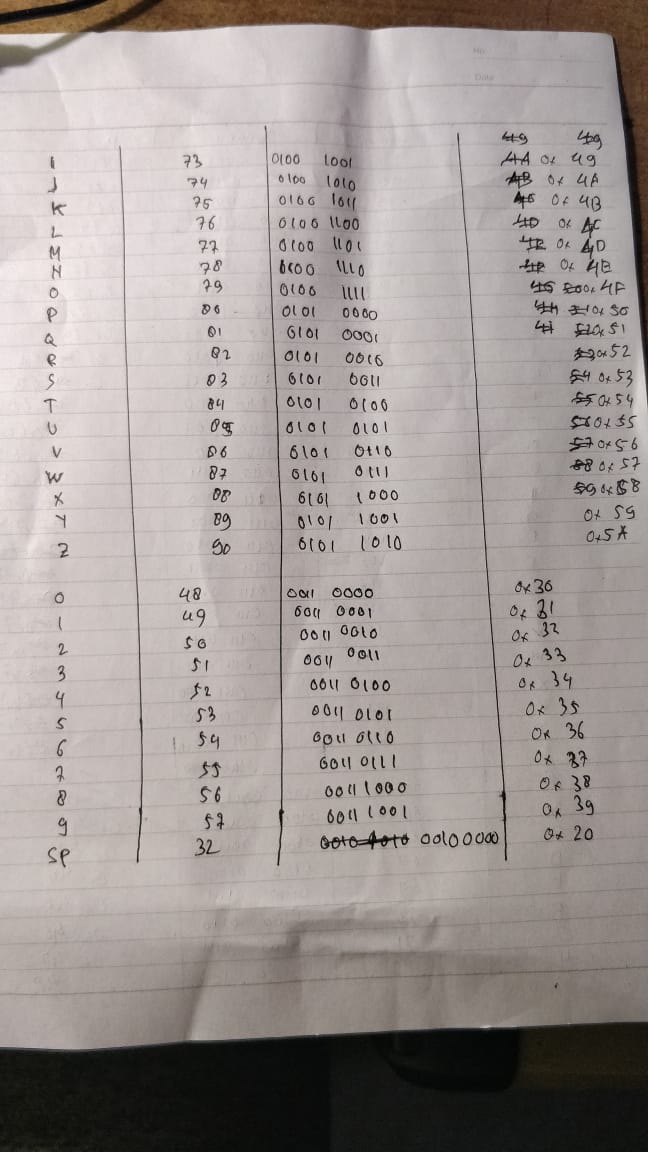 No
Date
49 49
I 73 0100 1001 4A 0x 49
J 74 0100 1010 4B 0x 4A
K 75 0100 1011 4C 0x 4B
L 76 0100 1100 4D 0x 4C
M 77 0100 1101 4E 0x 4D
N 78 0100 1110 4F 0x 4E
O 79 0100 1111 0x 4F
P 80 0101 0000 0x 50
Q 81 0101 0001 0x 51
R 82 0101 0010 53 0x 52
S 83 0101 0011 54 0x 53
T 84 0101 0100 55 0x 54
U 85 0101 0101 56 0x 55
V 86 0101 0110 57 0x 56
W 87 0101 0111 58 0x 57
X 88 0101 1000 59 0x 58
Y 89 0101 1001 0x 59
Z 90 0101 1010 0x5A
0 48 0011 0000 0x30
1 49 0011 0001 0x 31
2 50 0011 0010 0x 32
3 51 0011 0011 0x 33
4 52 0011 0100 0x 34
5 53 0011 0101 0x 35
6 54 0011 0110 0x 36
7 55 0011 0111 0x 37
8 56 0011 1000 0x 38
9 57 0011 1001 0x 39
SP 32 0010 1010 00100000 0x 20